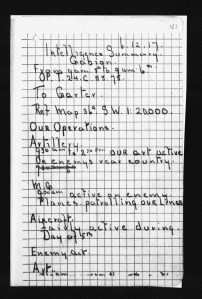 6.12.17.
Intelligence Summary.
Gabion
From 9am 5th to 9am 6th.
To Garter.
Ref Map 36c S.W. 1:20000
Our Operations.
Artillery.
our art active
on enemys rear country.
M.G.
active on enemy
planes patrolling our lines
Aircraft.
Fairly active during
Day of 5th
Enemy act.
Art.